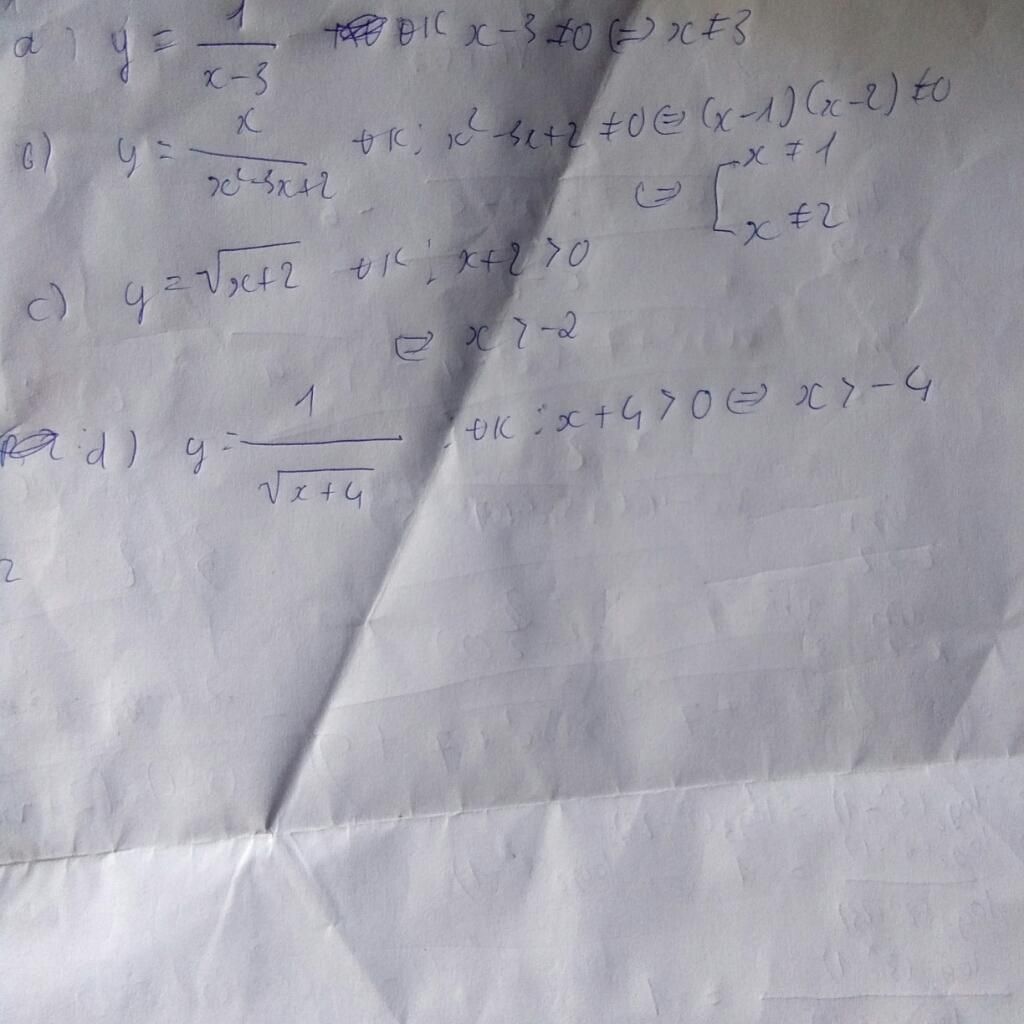 a) y = 1/(x-3) ĐK x-3 ≠0 ⇔ x≠3
b) y = x/(x²-3x+2) ĐK: x²-3x+2 ≠0 ⇔ (x-1)(x-2) ≠0
⇔ [ x ≠ 1
x ≠ 2
c) y = √(x+2) ĐK: x+2 > 0
⇔ x > -2
d) y = 1/√(x+4) : ĐK: x+4 > 0 ⇔ x > -4
2